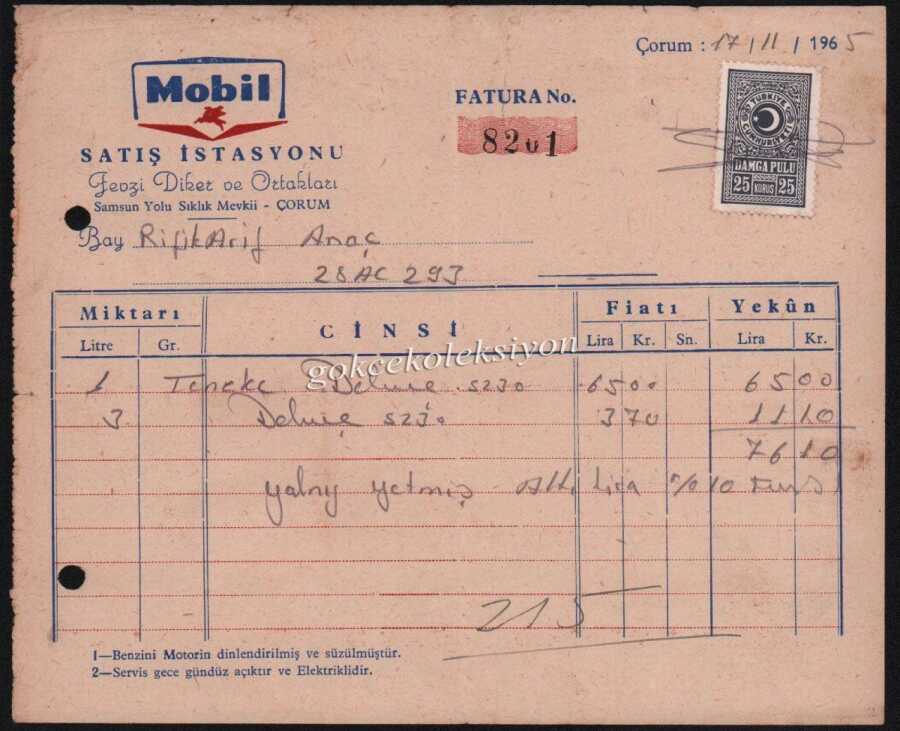 Çorum : 17 / 11 / 1965
Mobil
FATURA No.
8201
TÜRKİYE CUMHURİYETİ
DAMGA PULU
25 KURUŞ 25
SATIŞ İSTASYONU
Fevzi Diker ve Ortakları
Samsun Yolu Sıklık Mevkii - ÇORUM
Bay Arif Anaç
28 AC 293
Miktarı CİNSİ Fiatı Yekûn
Litre Gr. Lira Kr. Sn. Lira Kr.
gokcekoleksiyon
1 Teneke 65 00 65 00
3 3 70 11 10
76 10
yalnız yetmiş Altı Lira 10 Kuruş
215
1—Benzini Motorin dinlendirilmiş ve süzülmüştür.
2—Servis gece gündüz açıktır ve Elektriklidir.